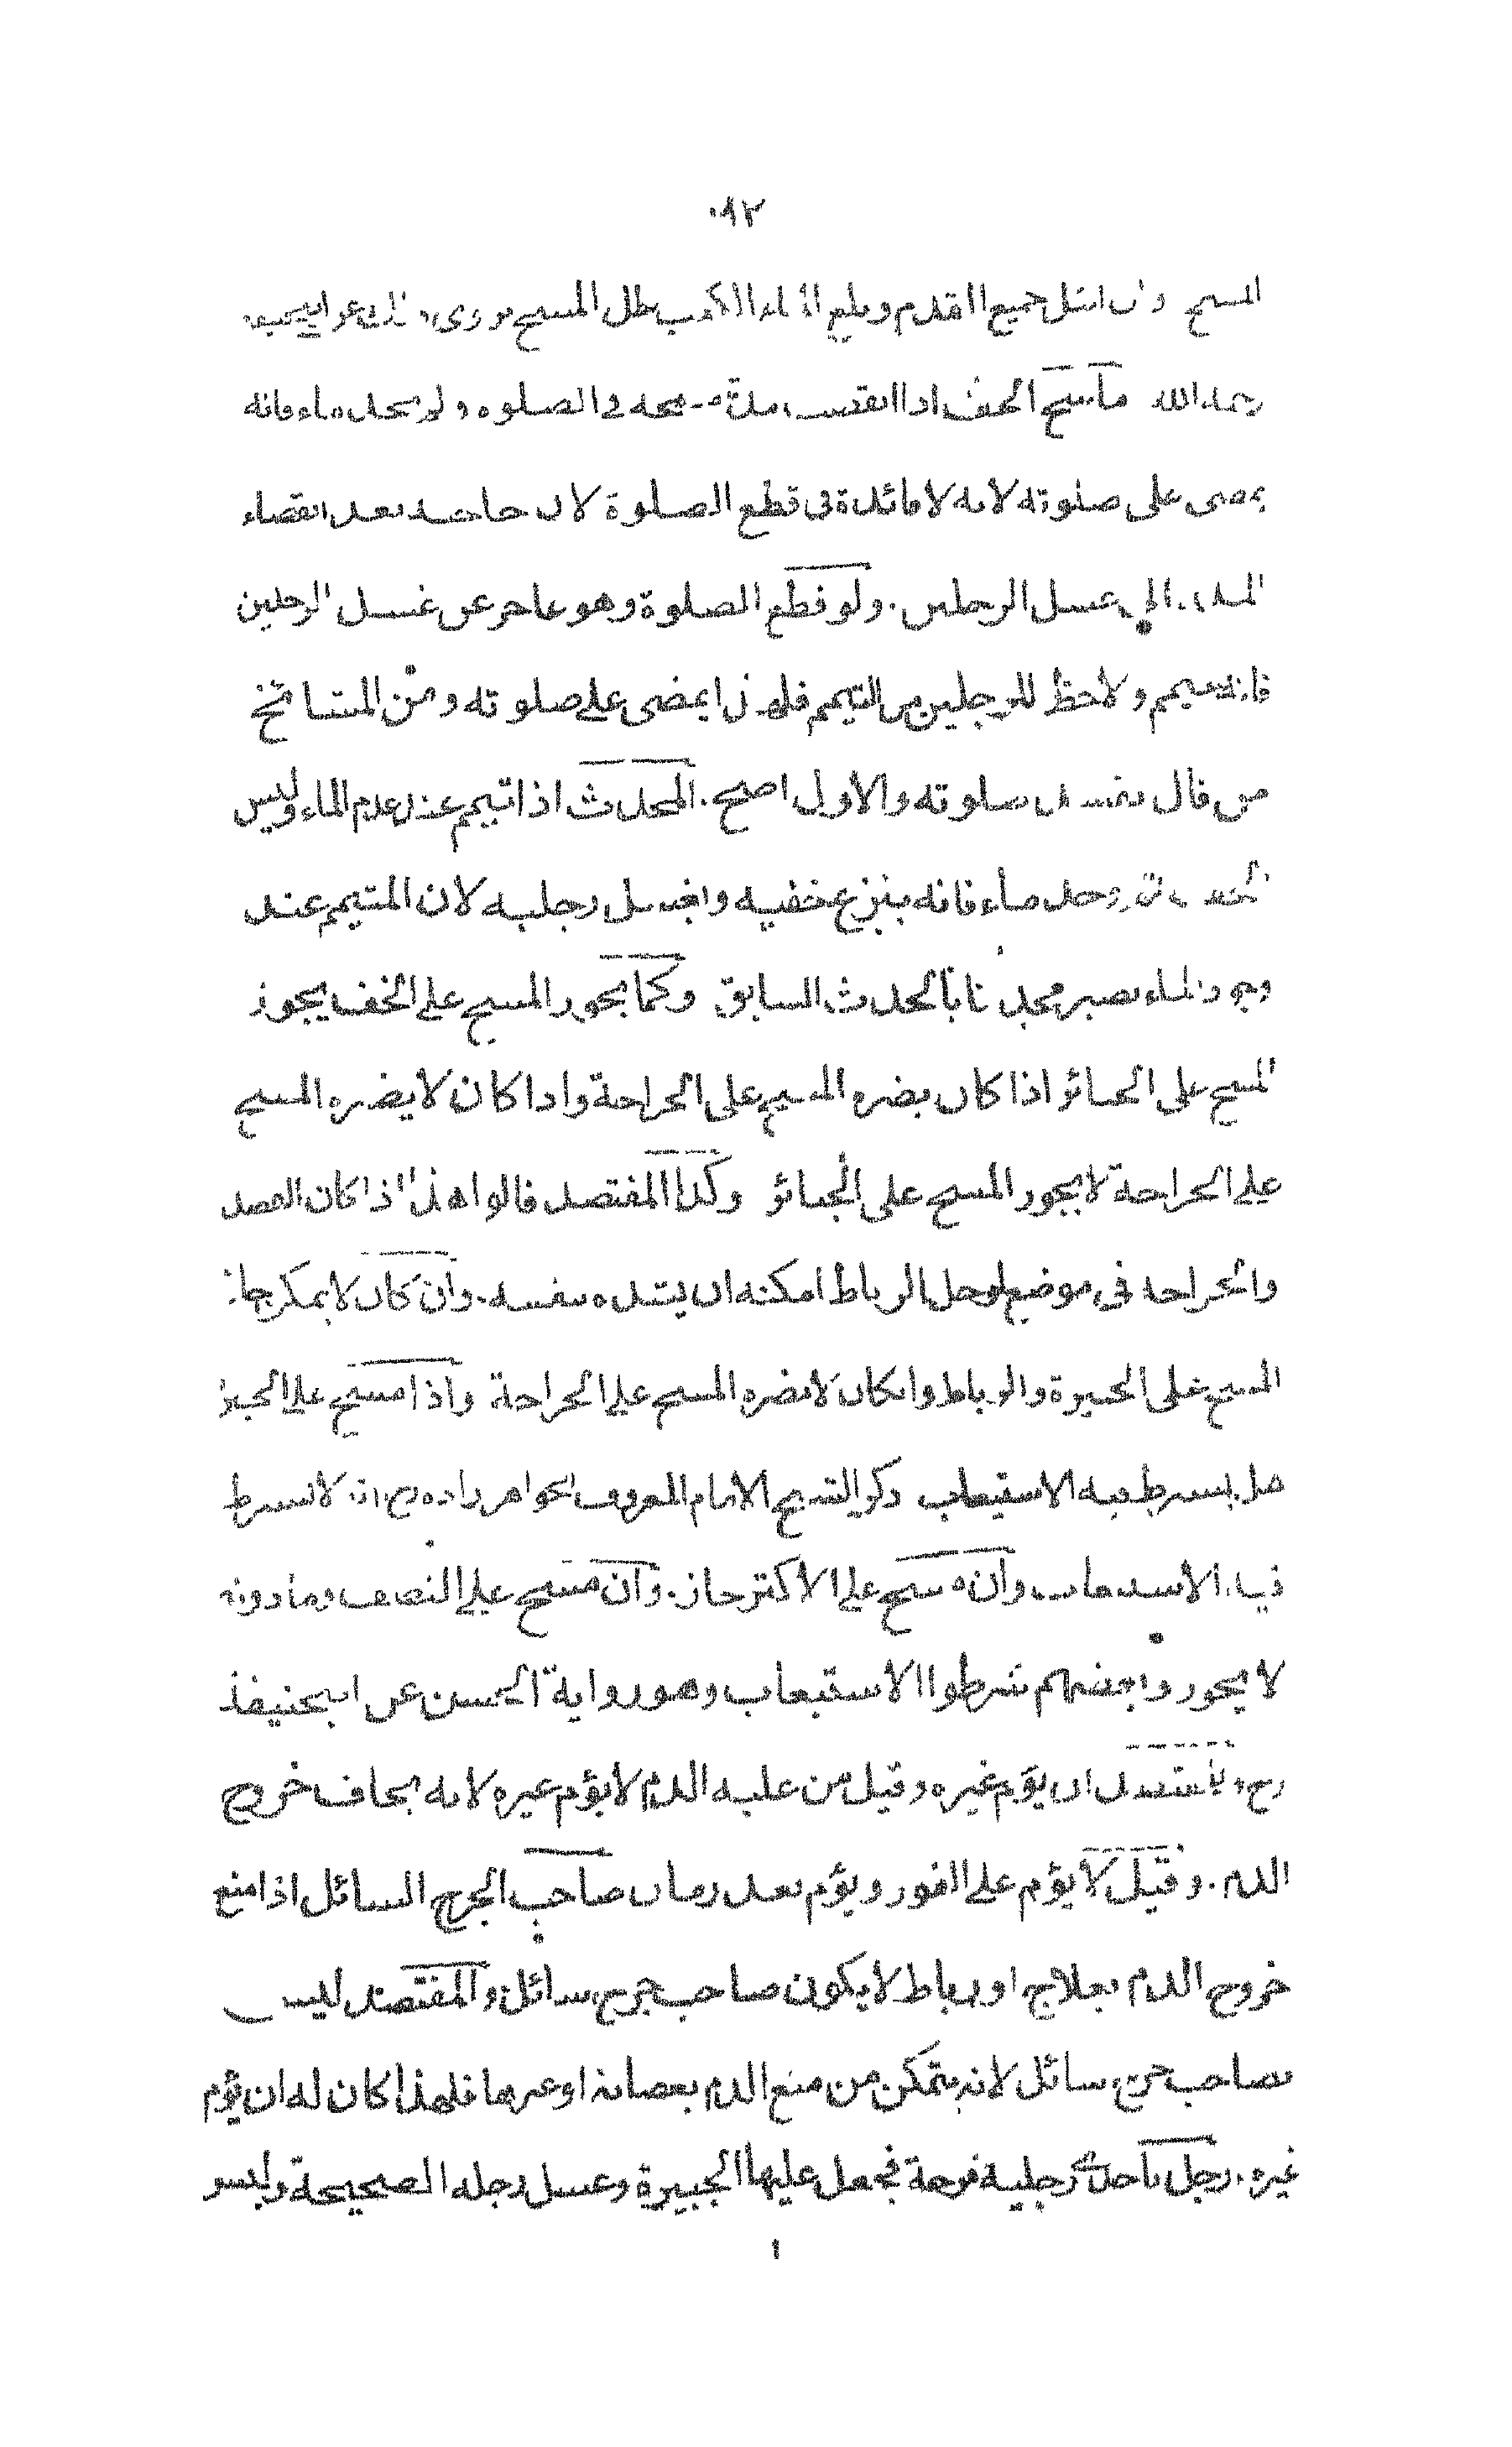 ٠٩٢
المسح وان ابتل جميع القدم وبلغ الماء الكعب بطل المسح مروى ذلك عن ابيحنيفة
رحمه الله ماسح الخف اذا انقضت مدة مسحه فى الصلوة ولم يجد ماء فانه
يمضى على صلوته لانه لا فائدة فى قطع الصلوة لان حاجته بعد انقضاء
المدة الى غسل الرجلين. ولو قطع الصلوة وهو عاجز عن غسل الرجلين
فانه يتيمم ولاحظ للرجلين من التيمم فلهذا يمضى على صلوته ومن المشائخ
من قال تفسد صلوته والاول اصح. المحدث اذا تيمم عند عدم الماء ولبس
الخف وجد ماء فانه ينزع خفيه ويغسل رجليه لان المتيمم عند
وجود الماء يصير محدثا بالحدث السابق وكما يجوز المسح على الخف يجوز
المسح على الجبائر اذا كان يضره المسح على الجراحة واذا كان لا يضره المسح
على الجراحة لا يجوز المسح على الجبائر وكذا المفتصد قالوا هذا اذا كان الفصد
والجراحة فى موضع لو حل الرباط امكنه ان يشده بنفسه. وان كان لا يمكن جاز
المسح على الجبيرة والرباط وان كان لا يضره المسح على الجراحة واذا مسح على الجبيرة
هل يشترط فيه الاستيعاب ذكر الشيخ الامام المعروف بخواهر زاده رح انه لا يشترط
فيه الاستيعاب وان مسح على الاكثر جاز. وان مسح على النصف وما دونه
لا يجوز وبعضهم شرطوا الاستيعاب وهو رواية الحسن عن ابيحنيفة
رح وللمفتصد ان يؤم غيره وقيل من عليه الدم لا يؤم غيره لانه يخاف خروج
الدم. وقيل لا يؤم على الفور ويؤم بعد زمان صاحب الجرح السائل اذا منع
خروج الدم بعلاج او رباط لا يكون صاحب جرح سائل والمفتصد ليس
بصاحب جرح سائل لانه يتمكن من منع الدم بعصابة او غيرها فلهذا كان له ان يؤم
غيره. رجل باحدى رجليه قرحة فجعل عليها الجبيرة وغسل رجله الصحيحة ولبس